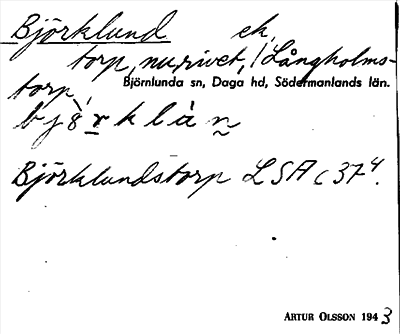 Björklund ek.
torp, nu rivet, /Långholms-
torp,
Björnlunda sn, Daga hd, Södermanlands län.
Björklundstorp LSA C 37⁴.
ARTUR OLSSON 1943